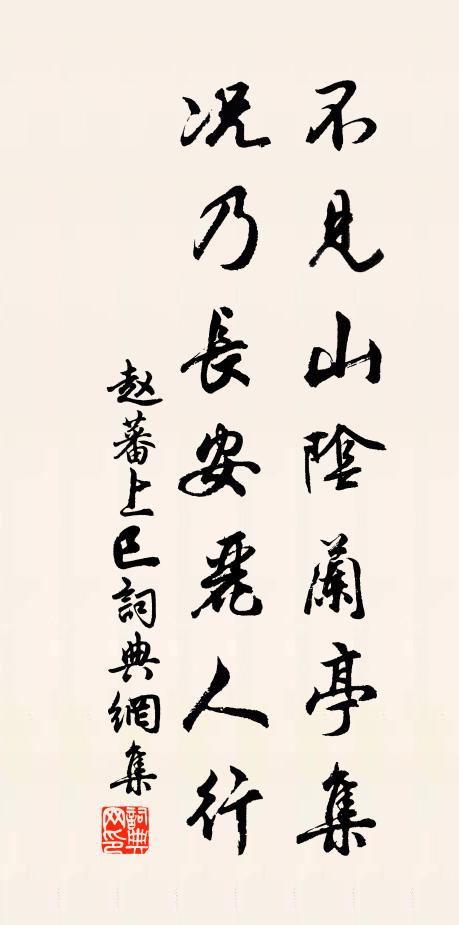 不見山陰蘭亭集
况乃長安麗人行
赵蕃上巳詞典網集
詞典網印